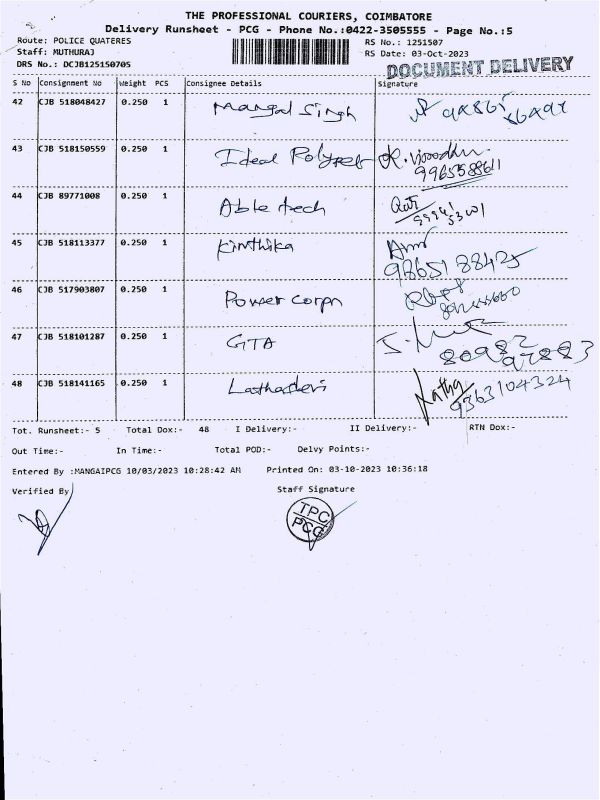 THE PROFESSIONAL COURIERS, COIMBATORE
Delivery Runsheet - PCG - Phone No.:0422-3505555 - Page No.:5
Route: POLICE QUATERES RS No.: 1251507
Staff: MUTHURAJ RS Date: 03-Oct-2023
DRS No.: DCJB125150705 DOCUMENT DELIVERY
S No Consignment No Weight PCS Consignee Details Signature
42 CJB 518048427 0.250 1 Mangal Singh
43 CJB 518150559 0.250 1 Ideal
9965588611
44 CJB 89771008 0.250 1 Able tech
45 CJB 518113377 0.250 1 Kirithika
9865188425
46 CJB 517903807 0.250 1 Power Corpn
47 CJB 518101287 0.250 1 GTA
80982
97883
48 CJB 518141165 0.250 1 Lathadevi Latha
9363104324
Tot. Runsheet:- 5 Total Dox:- 48 I Delivery:- II Delivery:- RTN Dox:-
Out Time:- In Time:- Total POD:- Delvy Points:-
Entered By :MANGAIPCG 10/03/2023 10:28:42 AM Printed On: 03-10-2023 10:36:18
Verified By Staff Signature
TPC
PCG